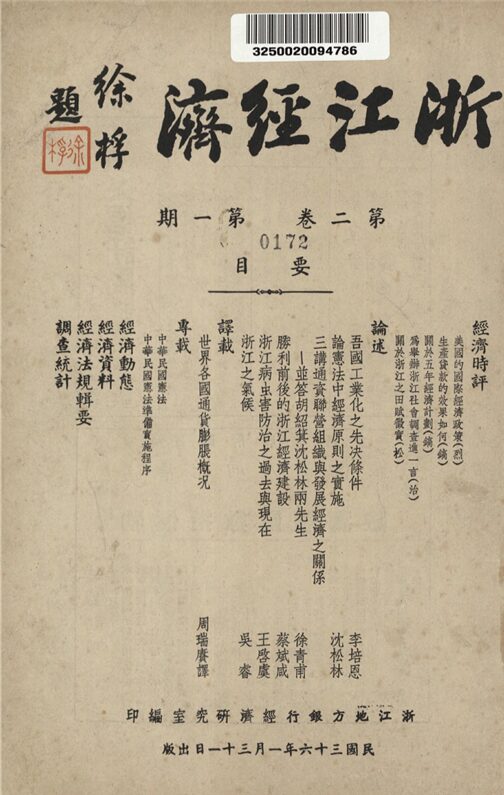 3250020094786
浙江經濟
徐桴
題
徐桴
第二卷 第一期
0172
要目
經濟時評
美國的國際經濟政策(烈)
生產貸款的效果如何(鏑)
關於五年經濟計劃(鏑)
為舉辦浙江社會調查進一言(治)
關於浙江之田賦徵實(松)
論述
吾國工業化之先決條件 李培恩
論憲法中經濟原則之實施 沈松林
三講通資聯營組織與發展經濟之關係
—並答胡紹箕沈松林兩先生 徐青甫
勝利前後的浙江經濟建設 蔡斌咸
浙江病虫害防治之過去與現在 王啓虞
浙江之氣候 吳睿
譯載
世界各國通貨膨脹概况 周瑞賡譯
專載
中華民國憲法
中華民國憲法準備實施程序
經濟動態
經濟資料
經濟法規輯要
調查統計
浙江地方銀行經濟研究室編印
民國三十六年一月三十一日出版